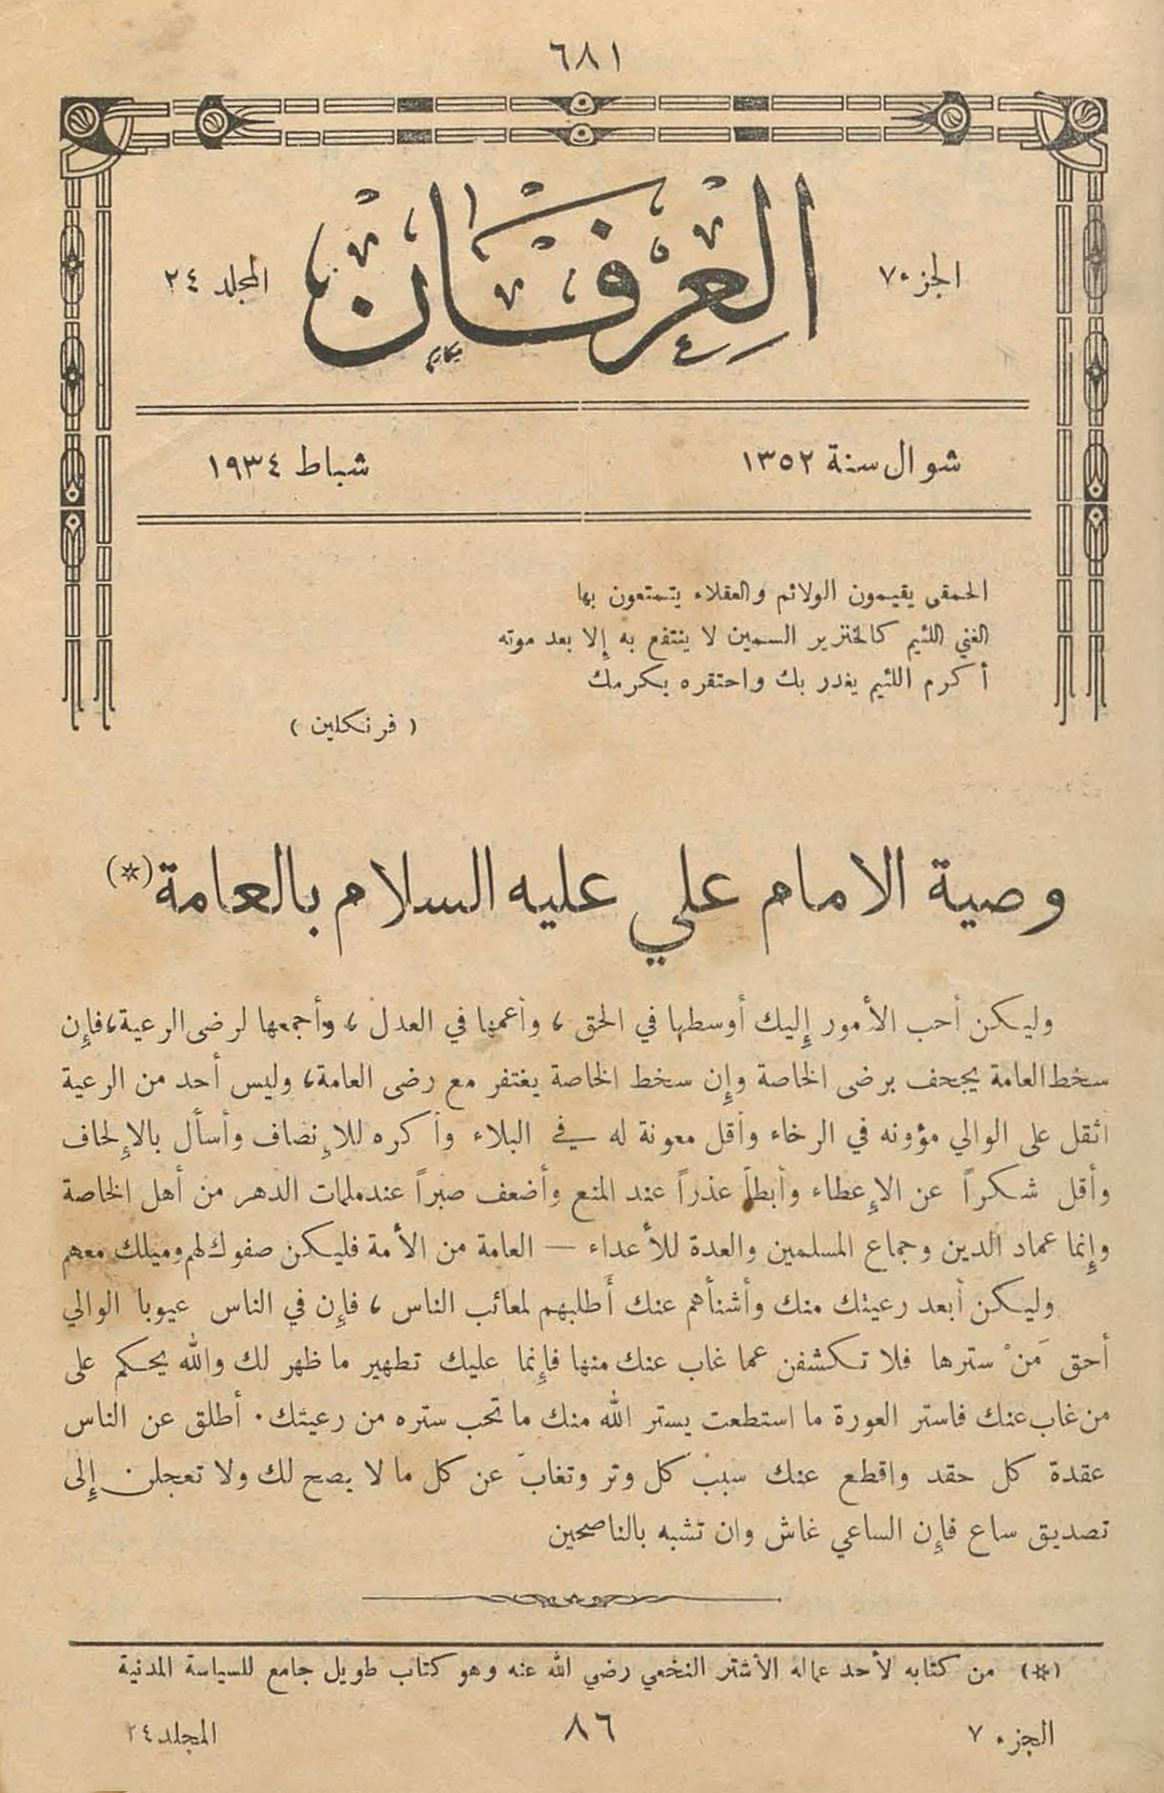 ٦٨١
الجزء ٧
العِرْفَان
المجلد ٢٤
شوال سنة ١٣٥٢
شباط ١٩٣٤
الحمقى يقيمون الولائم والعقلاء يتمتعون بها
الغني اللئيم كالخنزير السمين لا ينتفع به إلا بعد موته
أكرم اللئيم يغدر بك واحتقره يكرمك
( فرنكلين )
وصية الامام علي عليه السلام بالعامة (*)
وليكن أحب الأمور إليك أوسطها في الحق ، وأعمها في العدل ، وأجمعها لرضى الرعية، فإن
سخط العامة يجحف برضى الخاصة وإن سخط الخاصة يغتفر مع رضى العامة، وليس أحد من الرعية
اثقل على الوالي مؤونه في الرخاء وأقل معونة له في البلاء وأكره للإنصاف وأسأل بالإلحاف
وأقل شكراً عن الإعطاء وأبطأ عذراً عند المنع وأضعف صبراً عند ملمات الدهر من أهل الخاصة
وإنما عماد الدين وجماع المسلمين والعدة للأعداء — العامة من الأمة فليكن صفوك لهم وميلك معهم
وليكن أبعد رعيتك منك وأشنأهم عنك أَطلبهم لمعائب الناس ، فإن في الناس عيوبا الوالي
أحق مَنْ سترها فلا تكشفن عما غاب عنك منها فإنما عليك تطهير ما ظهر لك والله يحكم على
من غاب عنك فاستر العورة ما استطعت يستر الله منك ما تحب ستره من رعيتك. أطلق عن الناس
عقدة كل حقد واقطع عنك سبب كل وتر وتغابَ عن كل ما لا يصح لك ولا تعجلن إلى
تصديق ساع فإن الساعي غاش وان تشبه بالناصحين
(*) من كتابه لأحد عماله الأشتر النخعي رضي الله عنه وهو كتاب طويل جامع للسياسة المدنية
الجزء ٧
٨٦
المجلد ٢٤